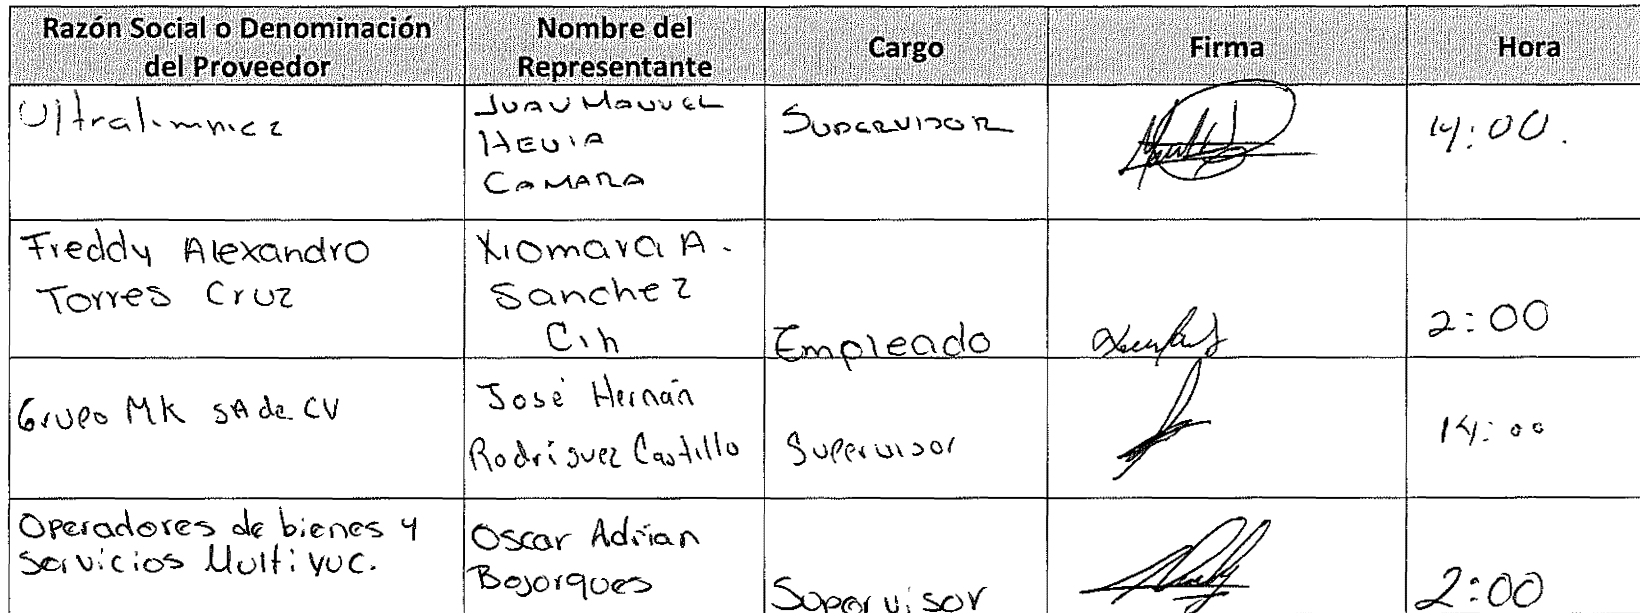 Razón Social o Denominación del Proveedor
Nombre del Representante
Cargo
Firma
Hora
JUAN MANUEL
HEVIA
CAMARA
SUPERVISOR
14:00.
Freddy Alexandro
Torres Cruz
Xiomara A.
Sanchez
Cih
Empleado
2:00
Grupo MK SA de CV
José Hernán
Rodríguez Castillo
Supervisor
14:00
Operadores de bienes y
servicios Multiyuc.
Oscar Adrian
Bojorques
Supervisor
2:00